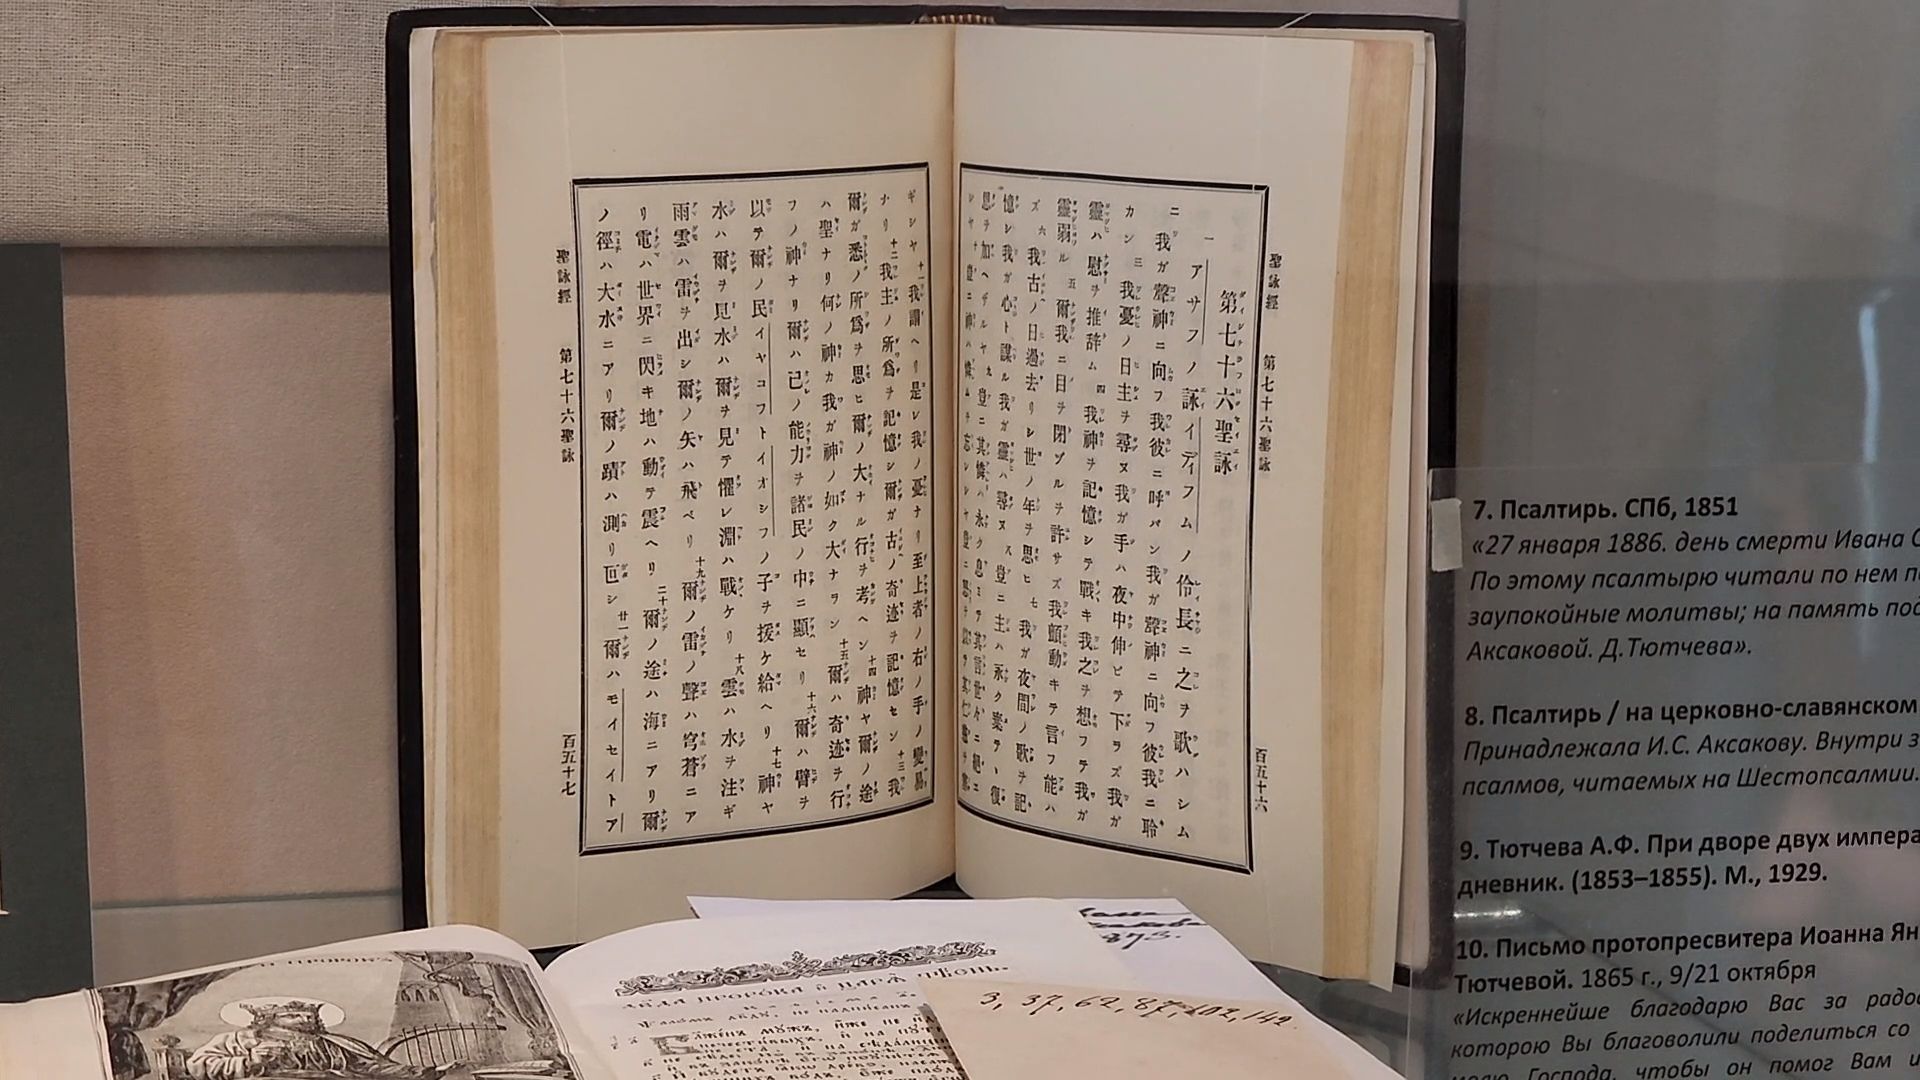 聖詠經 第七十六聖詠 百五十六
第七十六聖詠
一 アサフノ詠イディフムノ伶長ニ之ヲ歌ハシム
ニ 我ガ聲神ニ向フ我彼ニ呼バン我ガ聲神ニ向フ彼我ニ聆
カン 三 我憂ノ日主ヲ尋ヌ我ガ手ハ夜中伸ビテ下ラズ我ガ
靈ハ慰ヲ推辞ム 四 我神ヲ記憶シテ戰キ我之ヲ想フテ我ガ
靈弱ル 五 爾我ニ目ヲ閉ヅルヲ許サズ我顫動キテ言フ能ハ
ズ 六 我古ノ日過去リシ世ノ年ヲ思ヒ 七 我ガ夜間ノ歌ヲ記
憶シ我ガ心ト謀ル我ガ靈ハ尋ヌ 八 豈ニ主ハ永ク棄テ復
恩ヲ加ヘザルヤ 九 豈ニ其憐ハ永ク息ミ其言世々ニ絕ニ
シヤ 豈ニ神ハ憐ムヲ忘レシヤ豈ニ怒テ其
ギシヤ 十一 我謂ヘリ是レ我ノ憂ナリ至上者ノ右ノ手ノ變易
ナリ 十二 我主ノ所爲ヲ記憶シ爾ガ古ノ奇迹ヲ記憶セン 十三 我
爾ガ悉ノ所爲ヲ思ヒ爾ノ大ナル行ヲ考ヘン 十四 神ヤ爾ノ途
ハ聖ナリ何ノ神カ我ガ神ノ如ク大ナラン 十五 爾ハ奇迹ヲ行
フノ神ナリ爾ハ己ノ能力ヲ諸民ノ中ニ顯セリ 十六 爾ハ臂ヲ
以テ爾ノ民イヤコフトイオシフノ子ヲ援ケ給ヘリ 十七 神ヤ
水ハ爾ヲ見水ハ爾ヲ見テ懼レ淵ハ戰ケリ 十八 雲ハ水ヲ注ギ
雨雲ハ雷ヲ出シ爾ノ矢ハ飛ベリ 十九 爾ノ雷ノ聲ハ穹蒼ニア
リ電ハ世界ニ閃キ地ハ動テ震ヘリ 二十 爾ノ途ハ海ニアリ爾
ノ徑ハ大水ニアリ爾ノ蹟ハ測リ叵シ 廿一 爾ハモイセイトア
聖詠經 第七十六聖詠 百五十七
7. Псалтирь. СПб, 1851
«27 января 1886. день смерти Ивана С
По этому псалтырю читали по нем п
заупокойные молитвы; на память по
Аксаковой. Д.Тютчева».
8. Псалтирь / на церковно-славянском
Принадлежала И.С. Аксакову. Внутри з
псалмов, читаемых на Шестопсалмии.
9. Тютчева А.Ф. При дворе двух импера
дневник. (1853–1855). М., 1929.
10. Письмо протопресвитера Иоанна Ян
Тютчевой. 1865 г., 9/21 октября
«Искреннейше благодарю Вас за радос
которою Вы благоволили поделиться со
Господа, чтобы он помог Вам и
3, 37, 62, 87, 102, 142.